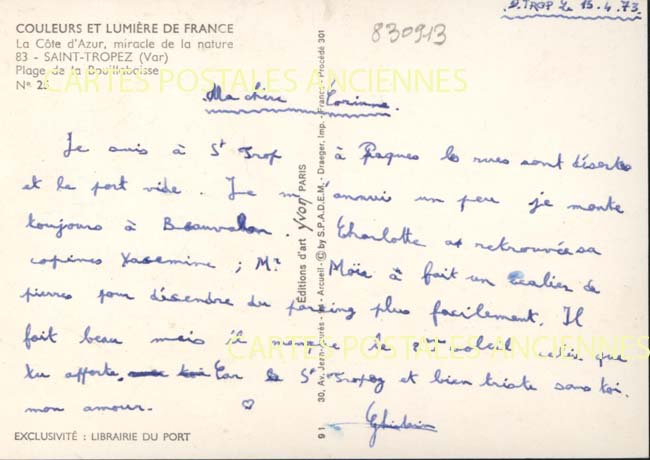 COULEURS ET LUMIÈRE DE FRANCE
La Côte d'Azur, miracle de la nature
83 - SAINT-TROPEZ (Var)
Plage de la Bouillabaisse
N° 25
S. TROP Le 15.4.73
830913
CARTES POSTALES ANCIENNES
Ma chère Corinne.
Je suis à St Trop à Paques les rues sont désertes
et le port vide. Je m'ennui un peu je monte
toujours à Beauvalon. Charlotte a retrouvée sa
copines Yasemine ; Mr Moïse à fait un escalier de
pierres pour déscendre du parking plus facilement. Il
fait beau mais il manque le soleil celui que
tu apporte, Car St Tropez et bien triste sans toi.
mon amour. ♡
Ghislain
CARTES POSTALES ANCIENNES
EXCLUSIVITÉ : LIBRAIRIE DU PORT
Éditions d'art yvon PARIS
91 30, Av. Jean-Jaurès - Arcueil - © by S.P.A.D.E.M. - Draeger, Imp. - France Procédé 301